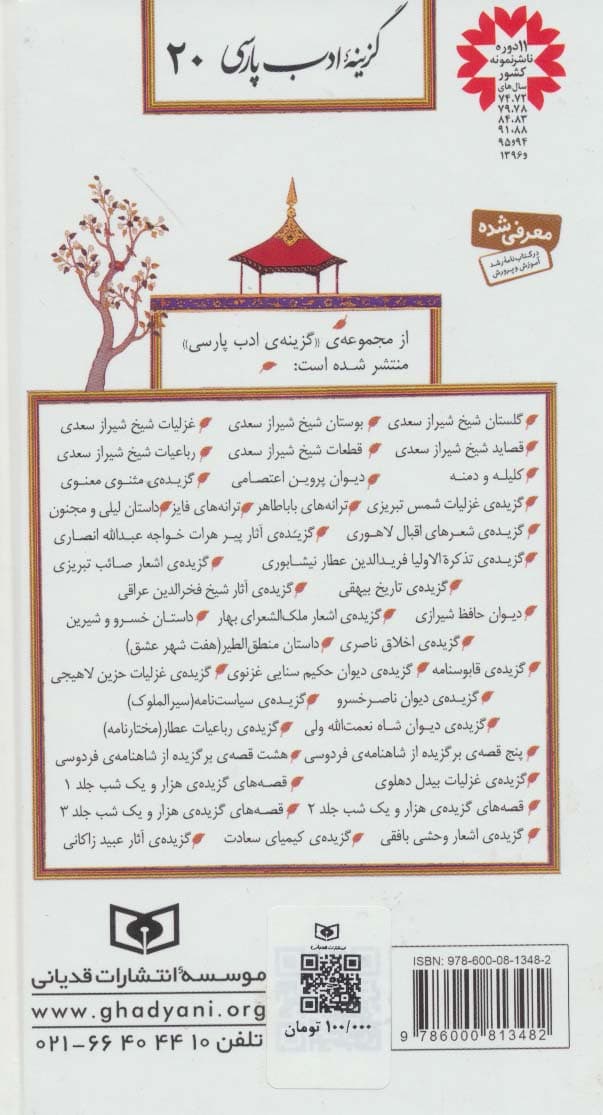 گزینهٔ ادب پارسی ۲۰
۱۱ دوره
ناشر نمونه
کشور
سال‌های
۷۴،۷۲
۷۹،۷۸
۸۴،۸۳
۹۱،۸۸
۹۴و۹۵
و۱۳۹۶
معرفی شده
در کتاب نامه رشد
آموزش و پرورش
از مجموعه‌ی «گزینه‌ی ادب پارسی»
منتشر شده است:
گلستان شیخ شیراز سعدی بوستان شیخ شیراز سعدی غزلیات شیخ شیراز سعدی
قصاید شیخ شیراز سعدی قطعات شیخ شیراز سعدی رباعیات شیخ شیراز سعدی
کلیله و دمنه دیوان پروین اعتصامی گزیده‌ی مثنوی معنوی
گزیده‌ی غزلیات شمس تبریزی ترانه‌های باباطاهر ترانه‌های فایز داستان لیلی و مجنون
گزیده‌ی شعرهای اقبال لاهوری گزیده‌ی آثار پیر هرات خواجه عبدالله انصاری
گزیده‌ی تذکرة الاولیا فریدالدین عطار نیشابوری گزیده‌ی اشعار صائب تبریزی
گزیده‌ی تاریخ بیهقی گزیده‌ی آثار شیخ فخرالدین عراقی
دیوان حافظ شیرازی گزیده‌ی اشعار ملک‌الشعرای بهار داستان خسرو و شیرین
گزیده‌ی اخلاق ناصری داستان منطق‌الطیر(هفت شهر عشق)
گزیده‌ی قابوسنامه گزیده‌ی دیوان حکیم سنایی غزنوی گزیده‌ی غزلیات حزین لاهیجی
گزیده‌ی دیوان ناصرخسرو گزیده‌ی سیاست‌نامه(سیرالملوک)
گزیده‌ی دیوان شاه نعمت‌الله ولی گزیده‌ی رباعیات عطار(مختارنامه)
پنج قصه‌ی برگزیده از شاهنامه‌ی فردوسی هشت قصه‌ی برگزیده از شاهنامه‌ی فردوسی
گزیده‌ی غزلیات بیدل دهلوی قصه‌های گزیده‌ی هزار و یک شب جلد ۱
قصه‌های گزیده‌ی هزار و یک شب جلد ۲ قصه‌های گزیده‌ی هزار و یک شب جلد ۳
گزیده‌ی اشعار وحشی بافقی گزیده‌ی کیمیای سعادت گزیده‌ی آثار عبید زاکانی
موسسهٔ انتشارات قدیانی
www.ghadyani.org
تلفن ۱۰ ۴۴ ۴۰ ۶۶-۰۲۱
انتشارات قدیانی
۱۰۰/۰۰۰ تومان
ISBN: 978-600-08-1348-2
9 786000 813482